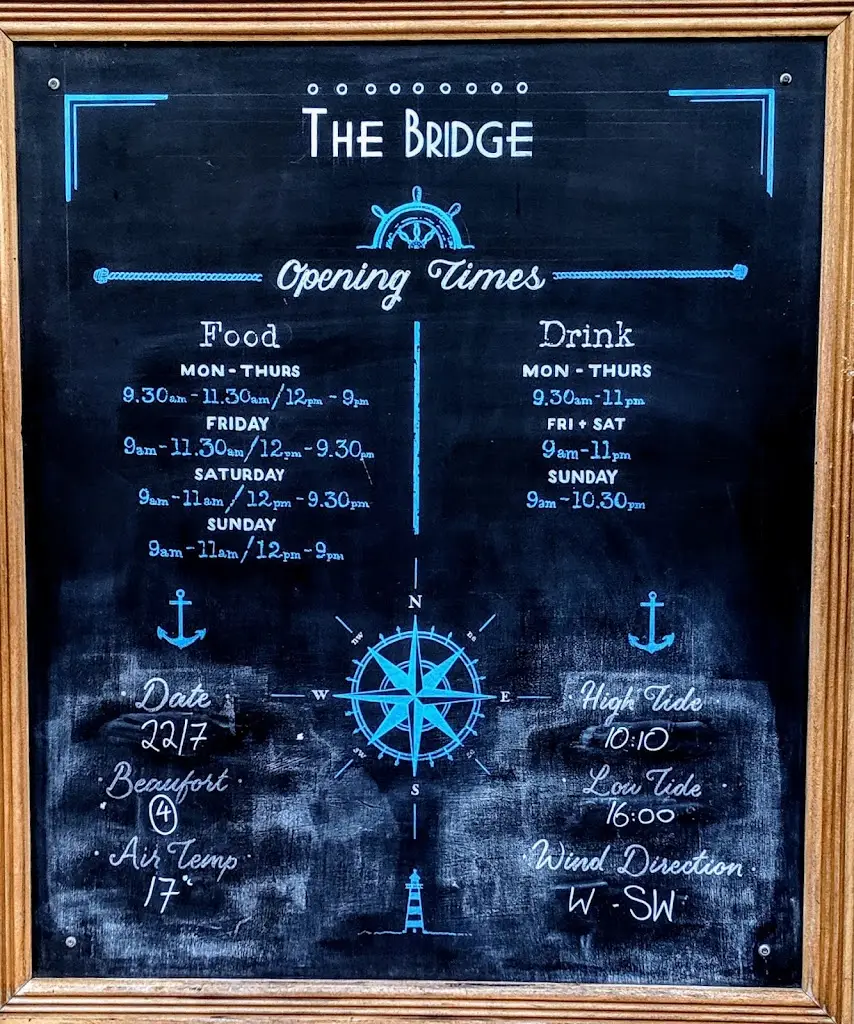 THE BRIDGE
Opening Times
Food
MON - THURS
9.30am - 11.30am / 12pm - 9pm
FRIDAY
9am - 11.30am / 12pm - 9.30pm
SATURDAY
9am - 11am / 12pm - 9.30pm
SUNDAY
9am - 11am / 12pm - 9pm
Drink
MON - THURS
9.30am - 11pm
FRI + SAT
9am - 11pm
SUNDAY
9am - 10.30pm
N
NW
NE
W
E
SW
S
· Date ·
22/7
· Beaufort ·
4
· Air Temp ·
17°c
· High Tide ·
10:10
· Low Tide ·
16:00
· Wind Direction ·
W - SW